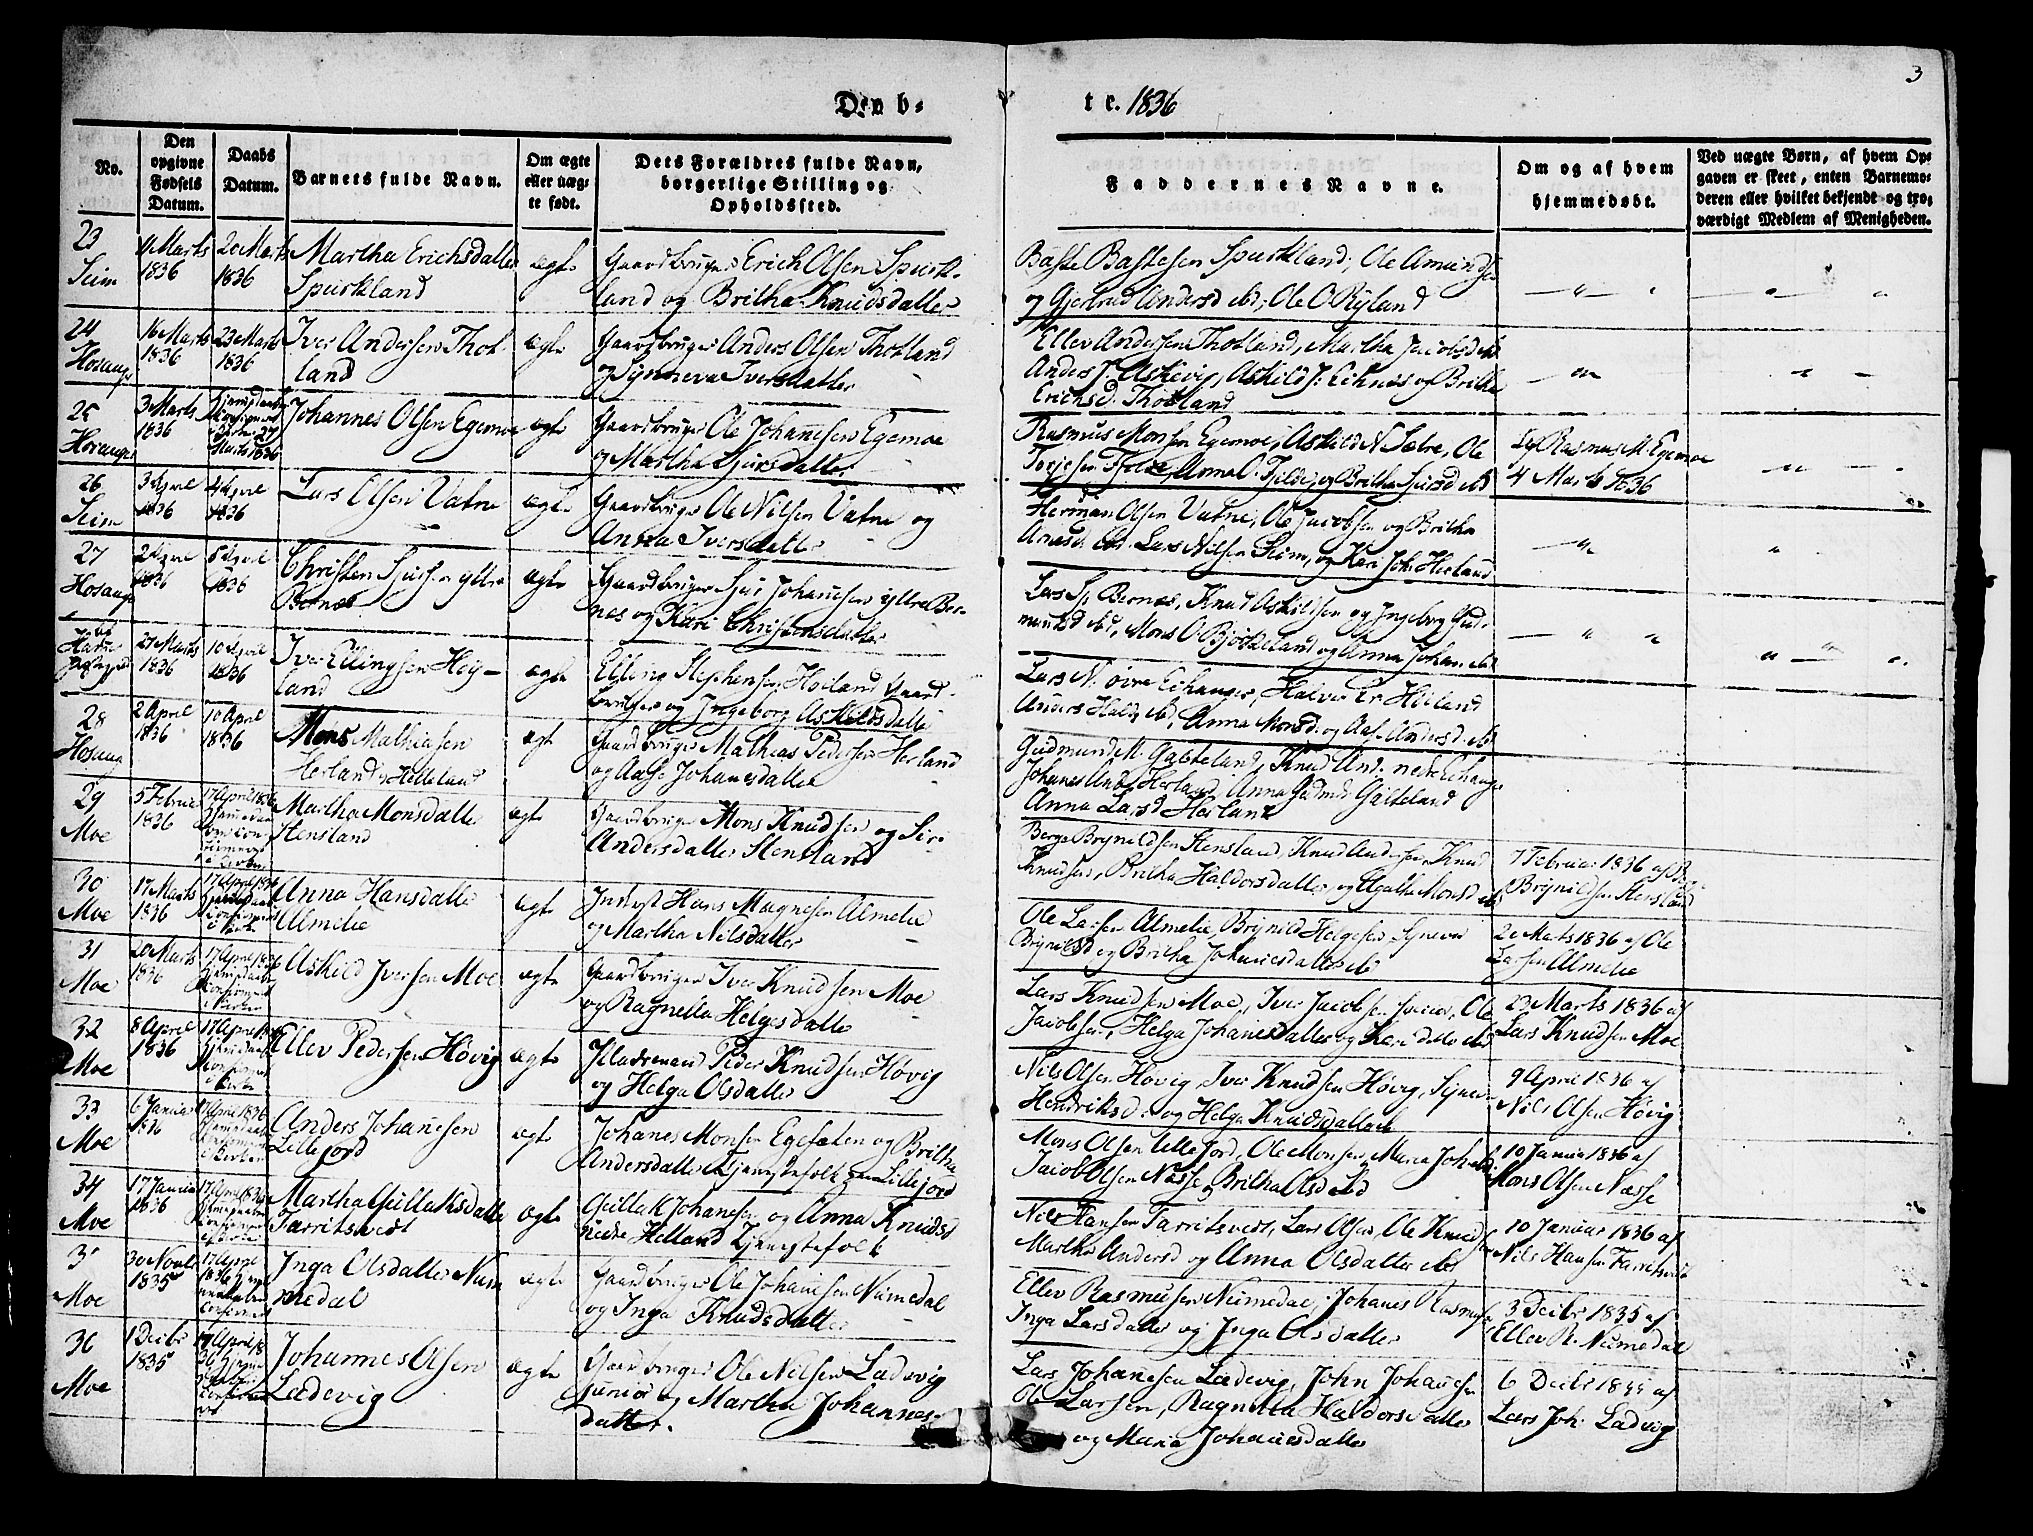 3
Døpte. 1836
No.
Den opgivne Fødsels Datum.
Daabs Datum.
Barnets fulde Navn.
Om ægte eller uægte født.
Dets Forældres fulde Navn, borgerlige Stilling og Opholdssted.
Faddernes Navne.
Om og af hvem hjemmedøbt.
Ved uægte Børn, af hvem Opgaven er skeet, enten Barnemoderen eller hvilket bekjendt og troværdigt Medlem af Menigheden.
23
Seim
11 Marts 1836
20 Marts 1836
Martha Erichsdatter
Spurkland
ægte
Gaardbruger Erich Olsen Spurk-
land og Britha Knudsdatter
Baste Bastesen Spurkland, Ole Amundsen
og Gjertrud Andersd ibd, Ole O Ryland
24
Hosanger
16 Marts 1836
23 Marts 1836
Iver Andersen Thot-
land
ægte
Gaardbruger Anders Olsen Thotland
og Synneva Iversdatter
Ellev Andersen Thotland, Martha Jacobsd ibd
Anders J. Askevig, Askild J. Eiknes og Britha
Erichsd. Thotland
25
Hosanger
3 Marts 1836
Marts 1836
Johannes Olsen Egemoe
ægte
Gaardbruger Ole Johannesen Egemoe
og Martha Sjursdatter
Rasmus Monsen Egemoe, Askild N. Sætre, Ole
Torjesen Fjelde, Anna O. Fjelde, og Britha Sjursd ibd
Rasmus M. Egemoe
4 Marts 1836
26
Seim
3 April 1836
4 April 1836
Lars Olsen Vatne
ægte
Gaardbruger Ole Nilsen Vatne og
Anna Iversdatter
Herman Olsen Vatne, Ole Jacobsen og Britha
Lars Nilsen Seim, og Kari Joh.
27
Hosanger
2 April 1836
5 April 1836
Christen Sjursen yttre
Bernes
ægte
Gaardbruger Sjur Johannesen yttre Ber-
nes og Kari Christensdatter
Lars S. Bernes, Knud Askildsen og Ingeborg Gud-
mundsd ibd, Mons O Bjørkeland og Anna Johan ibd
27 Marts 1836
10 April 1836
Iver Ellingsen Høi-
land
ægte
Elling Stephensen Høiland Gaard-
bruger og Ingeborg Askildsdatter
Lars N. øvre Eikanger, Halvor Er. Høiland
Anders Hald. ibd, Anna Monsd. og Aase Andersd. ibd
28
Hosang
2 April 1836
10 April 1836
Mons Mathiasen
Herland Helleland
ægt
Gaardbruger Mathias Pedersen Herland
og Aase Johannesdatter
Gudmund M. Galteland, Knud And. nedre Eikanger
Johanes And. Herland, Anna Gudmd. Galteland
Anna Larsd Herland
29
Moe
5 Februar 1836
17 April 1836
Martha Monsdatter
Stensland
ægte
Gaardbruger Mons Knudsen og Siri
Andersdatter Stensland
Berge Brynildsen Stensland, Knud Andersen, Knud
Knudsen, Britha Haldorsdatter, og Agatha Monsd ibd
7 Februar 1836 af
Brynildsen Stensland
30
Moe
17 Marts 1836
17 April 1836
Anna Hansdatter
Almelie
ægte
Inderst Hans Magnesen Almelie
og Martha Nilsdatter
Ole Larsen Almelie, Brynild Helgesen, Syneva
Brynildsd og Britha Johannesdatter ibd
20 Marts 1836 af Ole
Larsen Almelie
31
Moe
20 Marts 1836
17 April 1836
Askild Iversen Moe
ægte
Gaardbruger Iver Knudsen Moe
og Ragnella Helgesdatter
Lars Knudsen Moe, Iver Jacobsen, Ole
Jacobsen, Helga Johanesdatter og
23 Marts 1836 af
Lars Knudsen Moe
32
Moe
8 April 1836
17 April 1836
Ellev Pedersen Høvig
ægte
Pladsmand Peder Knudsen Høvig
og Helga Olsdatter
Nils Olsen Høvig, Iver Knudsen Høvig,
Hendriksd. og Helga Knudsdatter
9 April 1836 af
Nils Olsen Høvig
33
Moe
6 Januar 1836
17 April 1836
Anders Johannesen
Lillefjord
ægte
Johanes Monsen Egefæten og Britha
Andersdatter Tjenestefolk paa Lillefjord
Mons Olsen Lillefjord, Ole Monsen, Maria
Jacob Olsen Næsse, Britha Olsd ibd
10 Januar 1836 af
Mons Olsen Næsse
34
Moe
17 Januar 1836
17 April 1836
Martha Gullaksdatter
Tarritsvedt
ægte
Gullak Johanesen og Anna Knudsd
nedre Helland Tjenestefolk
Nils Hansen Tarritsvedt, Lars Olsen, Ole Knudsen
Martha Andersd og Anna Olsdatter ibd
10 Januar 1836 af
Nils Hansen Tarritsvedt
Moe
30 Novbr 1835
17 April 1836
Inga Olsdatter Num-
medal
ægte
Gaardbruger Ole Johannesen Nummedal
og Inga Knudsdatter
Ellev Rasmusen Nummedal, Johanes Rasmusen
Inga Larsdatter og Inga Olsdatter
3 Decbr 1835 af
Ellev R. Nummedal
36
Moe
1 Decbr 1835
17 April
Johannes Olsen
Ladevig
ægte
Gaardbruger Ole Nilsen Ladevig
junior og Martha Johannes-
datter.
Lars Johanesen Ladevig, John Johannesen
Ole Larsen, Ragnilla Haldorsdatter
og Maria Johannesdatter
6 Decbr 1835 af
Lars Joh. Ladevig